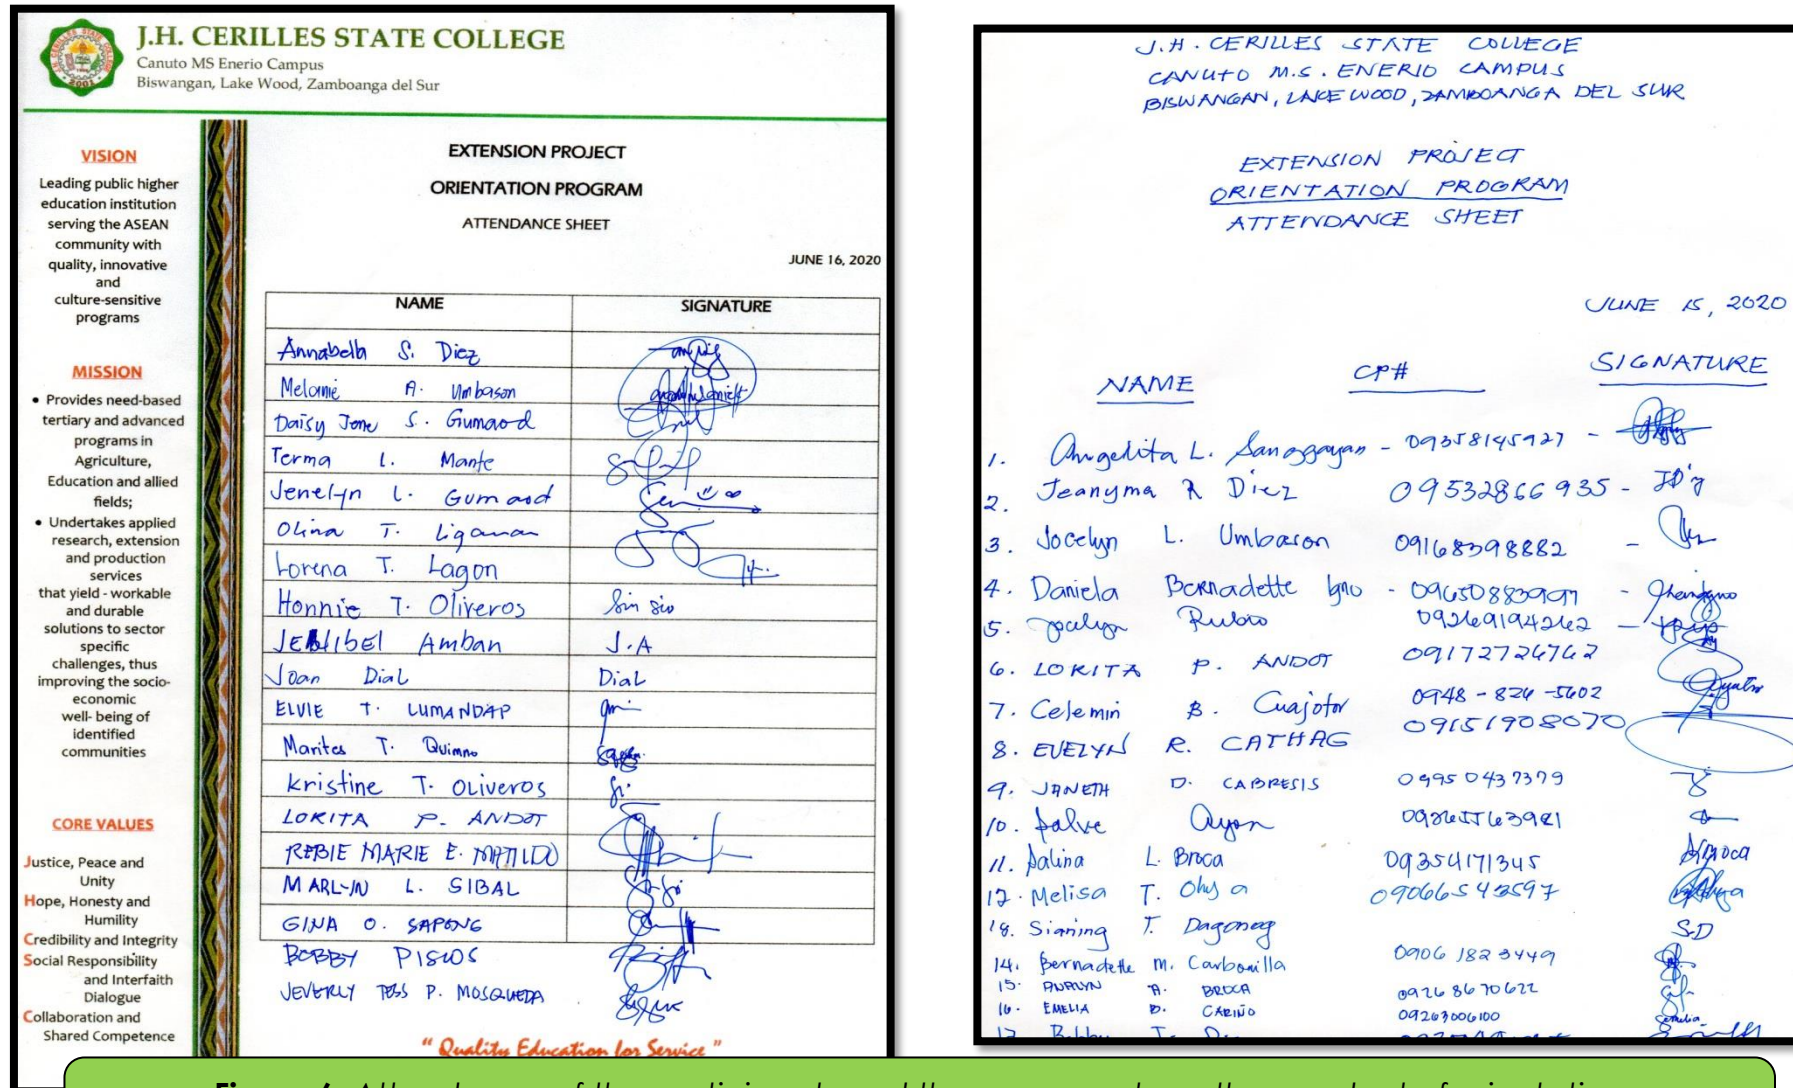 J.H. CERILLES STATE COLLEGE
Canuto MS Enerio Campus
Biswangan, Lake Wood, Zamboanga del Sur
VISION
Leading public higher
education institution
serving the ASEAN
community with
quality, innovative
and
culture-sensitive
programs
MISSION
• Provides need-based
tertiary and advanced
programs in
Agriculture,
Education and allied
fields;
• Undertakes applied
research, extension
and production
services
that yield - workable
and durable
solutions to sector
specific
challenges, thus
improving the socio-
economic
well- being of
identified
communities
CORE VALUES
Justice, Peace and
Unity
Hope, Honesty and
Humility
Credibility and Integrity
Social Responsibility
and Interfaith
Dialogue
Collaboration and
Shared Competence
EXTENSION PROJECT
ORIENTATION PROGRAM
ATTENDANCE SHEET
JUNE 16, 2020
NAME SIGNATURE
Annabella S. Diez
Melanie A. Umbason
Daisy Jane S. Gumaod
Terma L. Mante
Jenelyn L. Gumaod
Olina T. Ligaman
Lorena T. Lagon
Honnie T. Oliveros
Amban J.A
Joan Dial Dial
ELVIE T. LUMANDAP
Marites T. Quimno
Kristine T. Oliveros
LORITA P. ANDOT
REBIE MARIE E. MATILDO
MARLYN L. SIBAL
GINA O. SAPONG
BOBBY
JEVERLY TESS P. MOSQUEDA
" Quality Education for Service "
J.H. CERILLES STATE COLLEGE
CANUTO M.S. ENERIO CAMPUS
BISWANGAN, LAKE WOOD, ZAMBOANGA DEL SUR
EXTENSION PROJECT
ORIENTATION PROGRAM
ATTENDANCE SHEET
JUNE 15, 2020
NAME CP# SIGNATURE
1. Angelita L. Sanggayan - 09358145927 -
2. Jeanyma R Diez 09532866935 -
3. Jocelyn L. Umbason 09168398882 -
4. Daniela Bernadette -
5. Jocelyn Rubio 09269194262 -
6. LORITA P. ANDOT 09172726762
7. Celemin B. Cuajotor 0948-826-5602
8. EVELYN R. CATHAG 09151908070
9. JANETH D. CABRESIS 09950437379
10. Salve Ayon
11. Salina L. Broca 09354171345
12. Melisa T. 09066543597
Sianing T. Dagonag S.D
14. Bernadette M. Carbonilla 0906 182 3449
15. A. BROCA 09268670622
16. EMELIA D. CARIÑO 09263006100
17